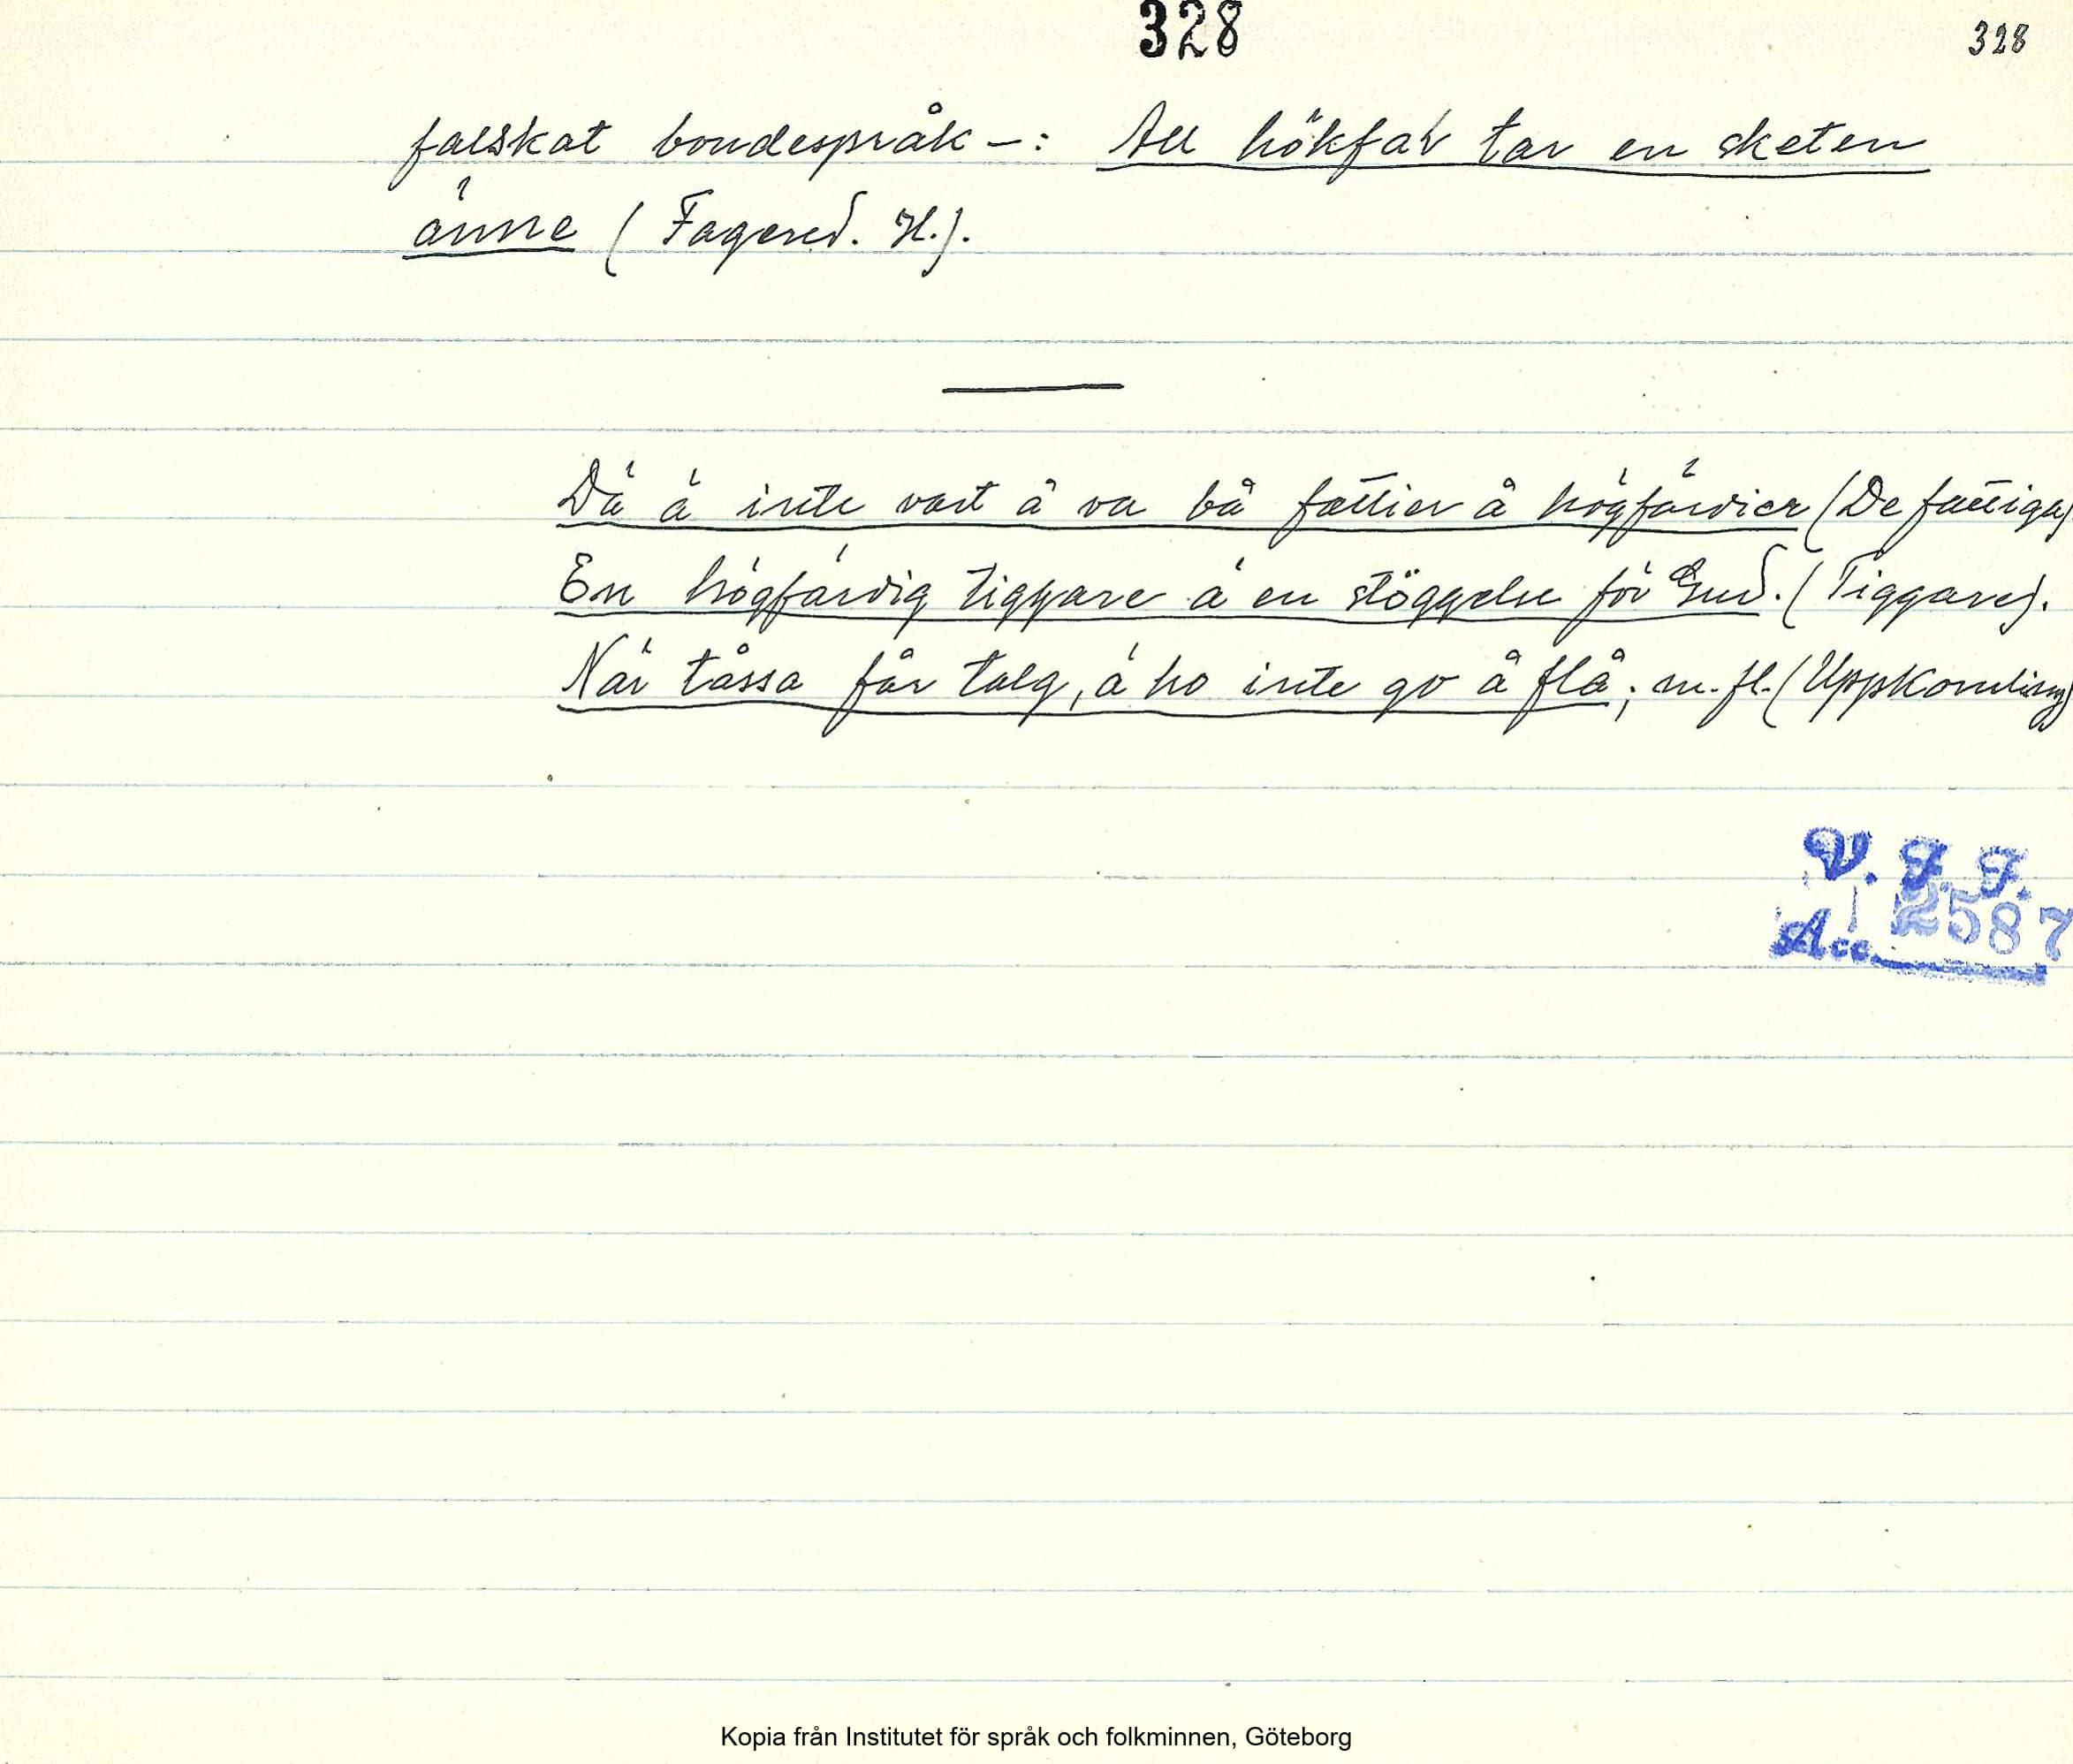 328
328
falskat bondespråk -: All hökfär tar en sketen
änne (Fagered. H.).
Dä ä inte vart å va bå fattier å högfärdier (De fattiga)
En högfärdig tiggare ä en stöggelse för Gud. (Tiggare).
När tåssa får talg, ä ho inte go å flå; m. fl. (Uppkomling)
V. F. F.
Acc. 2587
Kopia från Institutet för språk och folkminnen, Göteborg